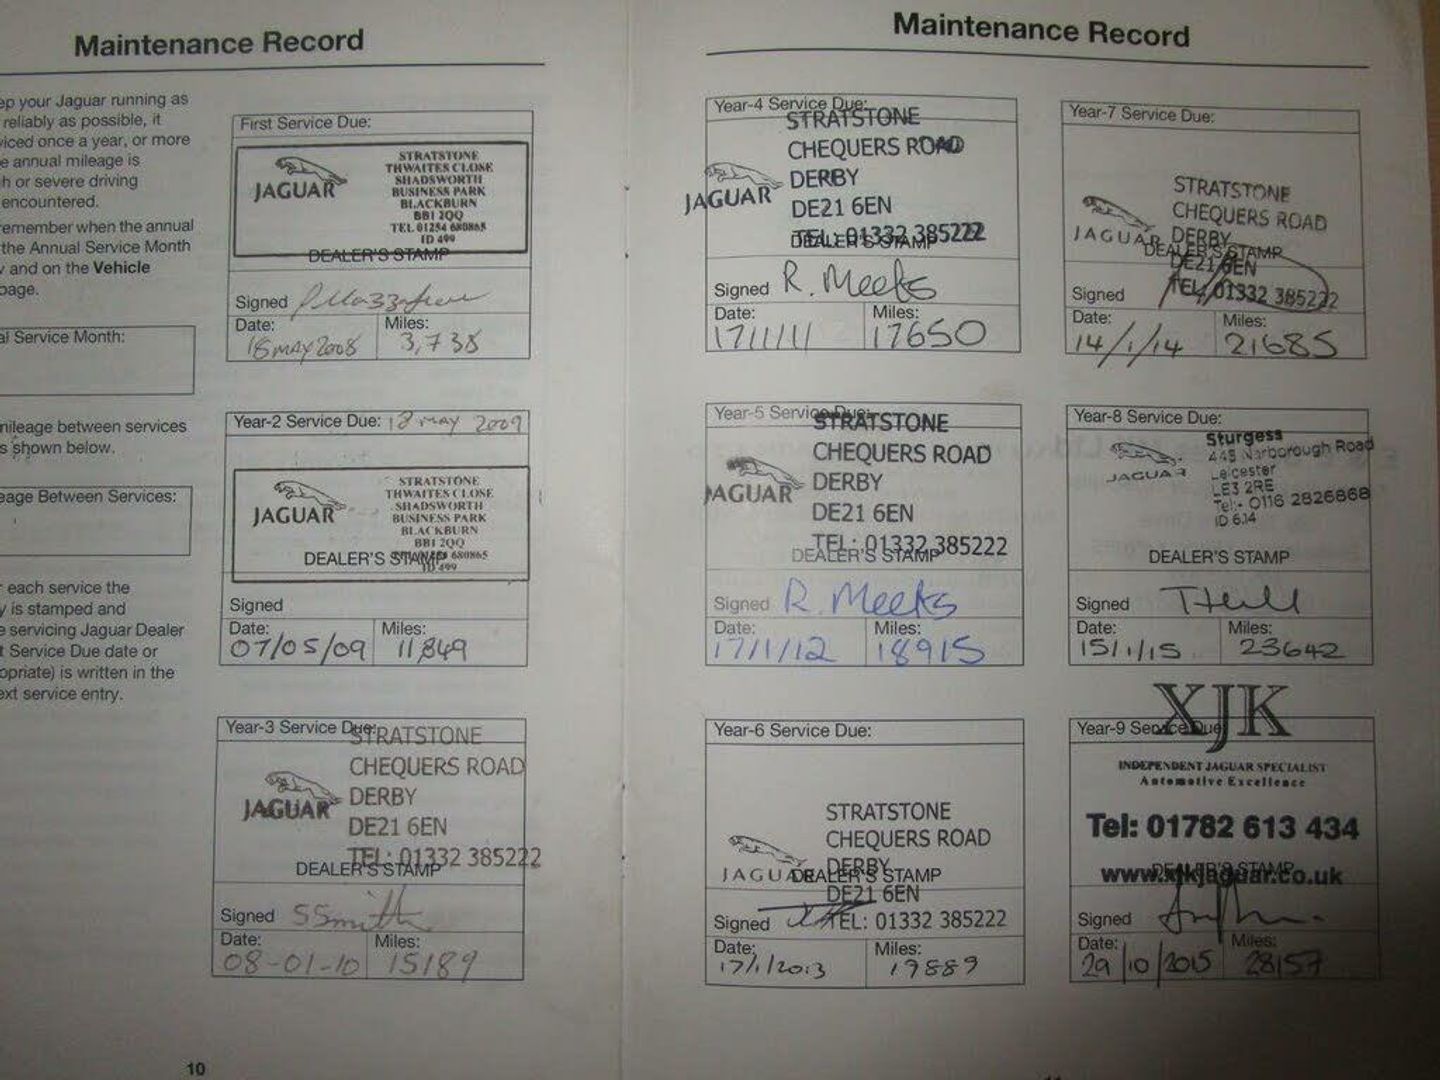 Maintenance Record
ep your Jaguar running as
reliably as possible, it
viced once a year, or more
e annual mileage is
h or severe driving
encountered.
remember when the annual
the Annual Service Month
and on the Vehicle
page.
al Service Month:
mileage between services
s shown below.
eage Between Services:
each service the
y is stamped and
e servicing Jaguar Dealer
t Service Due date or
opriate) is written in the
ext service entry.
First Service Due:
JAGUAR
STRATSTONE
THWAITES CLOSE
SHADSWORTH
BUSINESS PARK
BLACKBURN
BB1 2QQ
TEL 01254 680865
ID 499
DEALER'S STAMP
Signed
Date: Miles:
18 MAY 2008 3,738
Year-2 Service Due: 18 May 2009
JAGUAR
STRATSTONE
THWAITES CLOSE
SHADSWORTH
BUSINESS PARK
BLACKBURN
BB1 2QQ
680865
ID 499
DEALER'S STAMP
Signed
Date: Miles:
07/05/09 11,849
Year-3 Service Due:
JAGUAR
STRATSTONE
CHEQUERS ROAD
DERBY
DE21 6EN
TEL: 01332 385222
DEALER'S STAMP
Signed S Smith
Date: Miles:
08-01-10 15189
10
Maintenance Record
Year-4 Service Due:
JAGUAR
STRATSTONE
CHEQUERS ROAD
DERBY
DE21 6EN
TEL: 01332 385222
DEALER'S STAMP
Signed R. Meeks
Date: Miles:
17/1/11 17650
Year-5 Service Due:
JAGUAR
STRATSTONE
CHEQUERS ROAD
DERBY
DE21 6EN
TEL: 01332 385222
DEALER'S STAMP
Signed R. Meeks
Date: Miles:
17/1/12 18915
Year-6 Service Due:
JAGUAR
STRATSTONE
CHEQUERS ROAD
DERBY
DE21 6EN
TEL: 01332 385222
DEALER'S STAMP
Signed
Date: Miles:
17/1/2013 19889
Year-7 Service Due:
JAGUAR
STRATSTONE
CHEQUERS ROAD
DERBY
DE21 6EN
TEL: 01332 385222
DEALER'S STAMP
Signed
Date: Miles:
14/1/14 21685
Year-8 Service Due:
JAGUAR
Sturgess
445 Narborough Road
Leicester
LE3 2RE
Tel:- 0116 2826868
ID 614
DEALER'S STAMP
Signed T Hill
Date: Miles:
15/1/15 23642
Year-9 Service Due:
XJK
INDEPENDENT JAGUAR SPECIALIST
Automotive Excellence
Tel: 01782 613 434
www.xjkjaguar.co.uk
DEALER'S STAMP
Signed
Date: Miles:
29/10/2015 28157